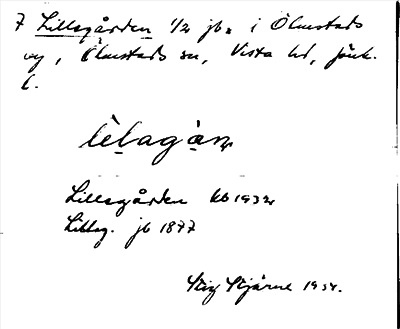 7 Lillsgården 1/2 jb. i Ölmstads
by, Ölmstads sn, Vista hd, Jönk.
l.
lèlagàn
Lillsgården kb 1932
Lillsg. jb 1877
Stig Stjärne 1934.